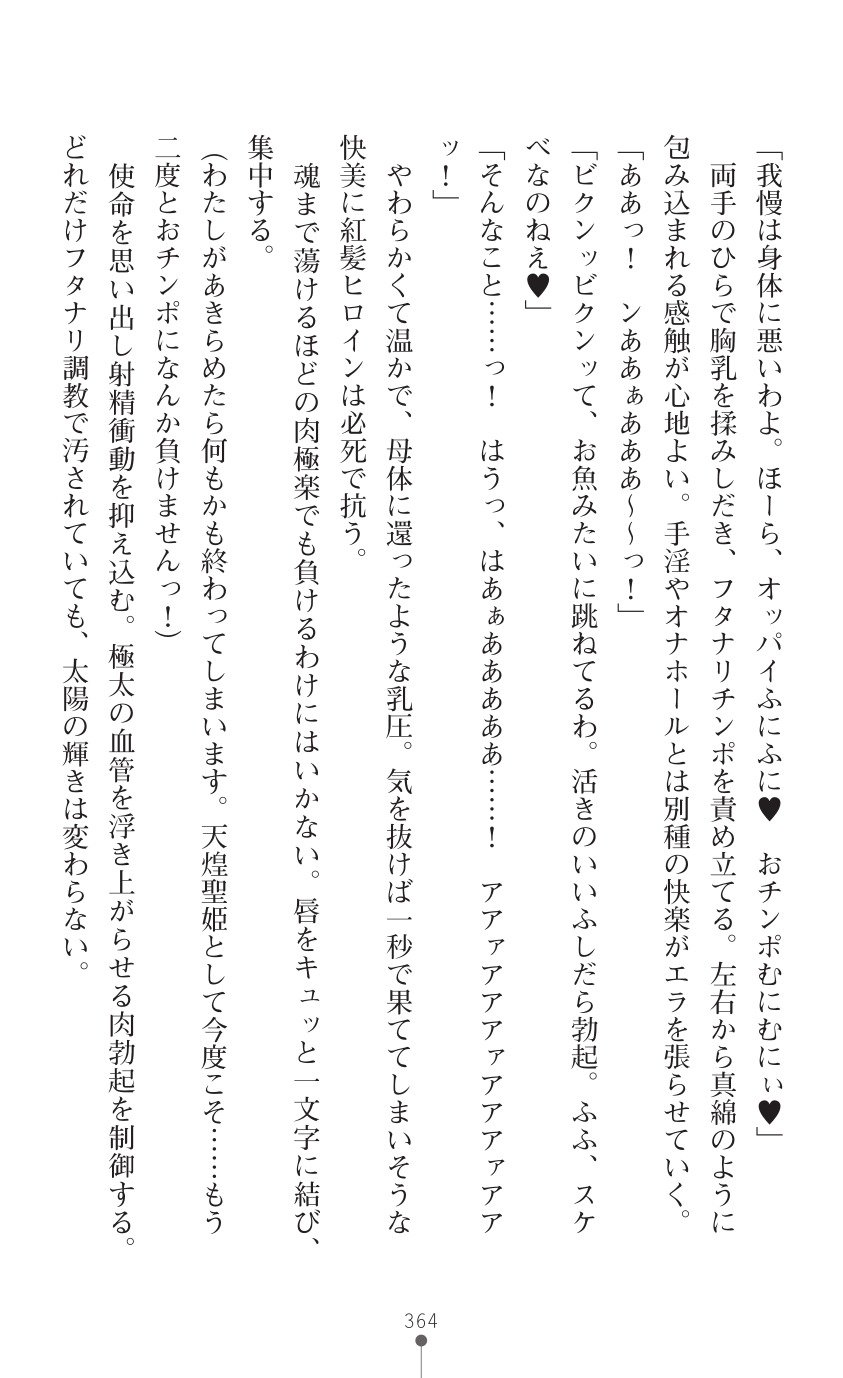 「我慢は身体に悪いわよ。ほーら、オッパイふにふに♥　おチンポむにむにぃ♥」
　両手のひらで胸乳を揉みしだき、フタナリチンポを責め立てる。左右から真綿のように
包み込まれる感触が心地よい。手淫やオナホールとは別種の快楽がエラを張らせていく。
「ああっ！　ンああぁあああ～～っ！」
「ビクンッビクンッて、お魚みたいに跳ねてるわ。活きのいいふしだら勃起。ふふ、スケ
べなのねえ♥」
「そんなこと……っ！　はうっ、はあぁああああぁ……！　アアァアアアァアアアァアア
ッ！」
　やわらかくて温かで、母体に還ったような乳圧。気を抜けば一秒で果ててしまいそうな
快美に紅髪ヒロインは必死で抗う。
　魂まで蕩けるほどの肉極楽でも負けるわけにはいかない。唇をキュッと一文字に結び、
集中する。
（わたしがあきらめたら何もかも終わってしまいます。天煌聖姫として今度こそ……もう
二度とおチンポになんか負けませんっ！）
　使命を思い出し射精衝動を抑え込む。極太の血管を浮き上がらせる肉勃起を制御する。
どれだけフタナリ調教で汚されていても、太陽の輝きは変わらない。
364